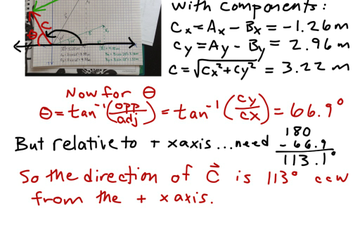 with components:
Cx = Ax - Bx = -1.26 m
Cy = Ay - By = 2.96 m
C = √Cx² + Cy² = 3.22 m
C
θ
Now for θ
θ = tan⁻¹(opp/adj) = tan⁻¹(Cy/Cx) = 66.9°
But relative to + x axis... need
180
- 66.9
113.1°
So the direction of C⃗ is 113° ccw
from the + x axis.